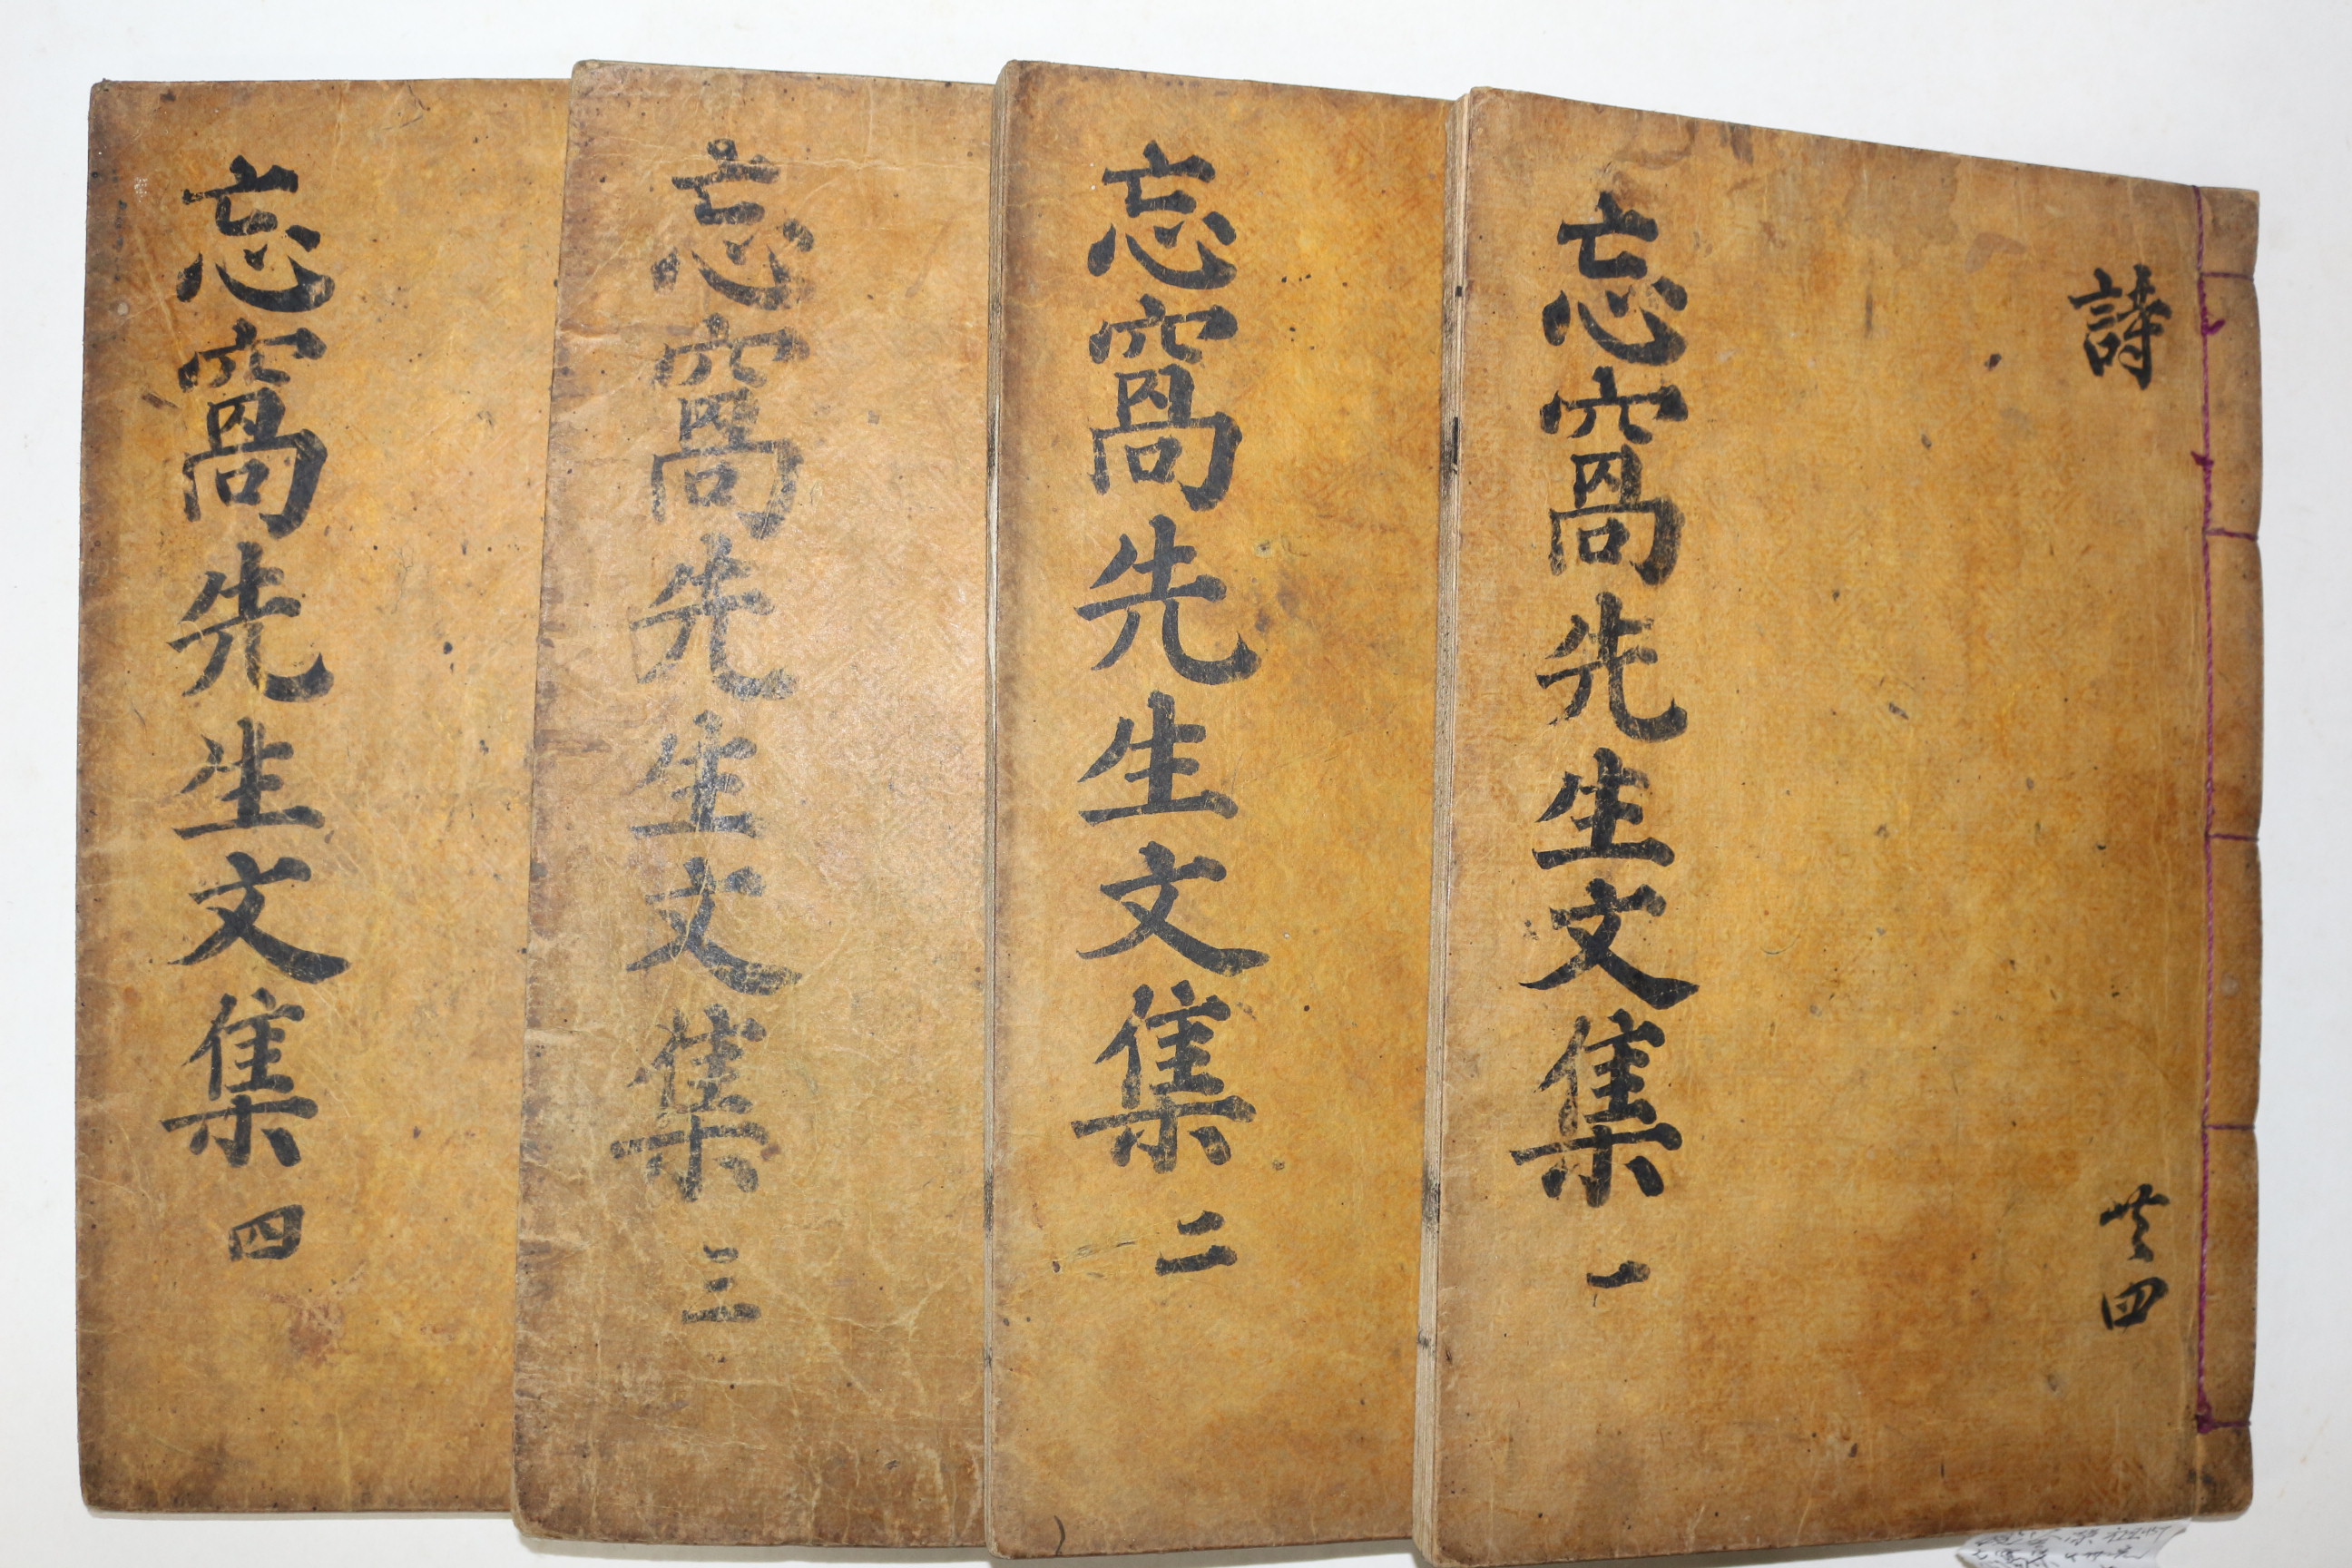 詩
共四
忘窩先生文集 一
忘窩先生文集 二
忘窩先生文集 三
忘窩先生文集 四